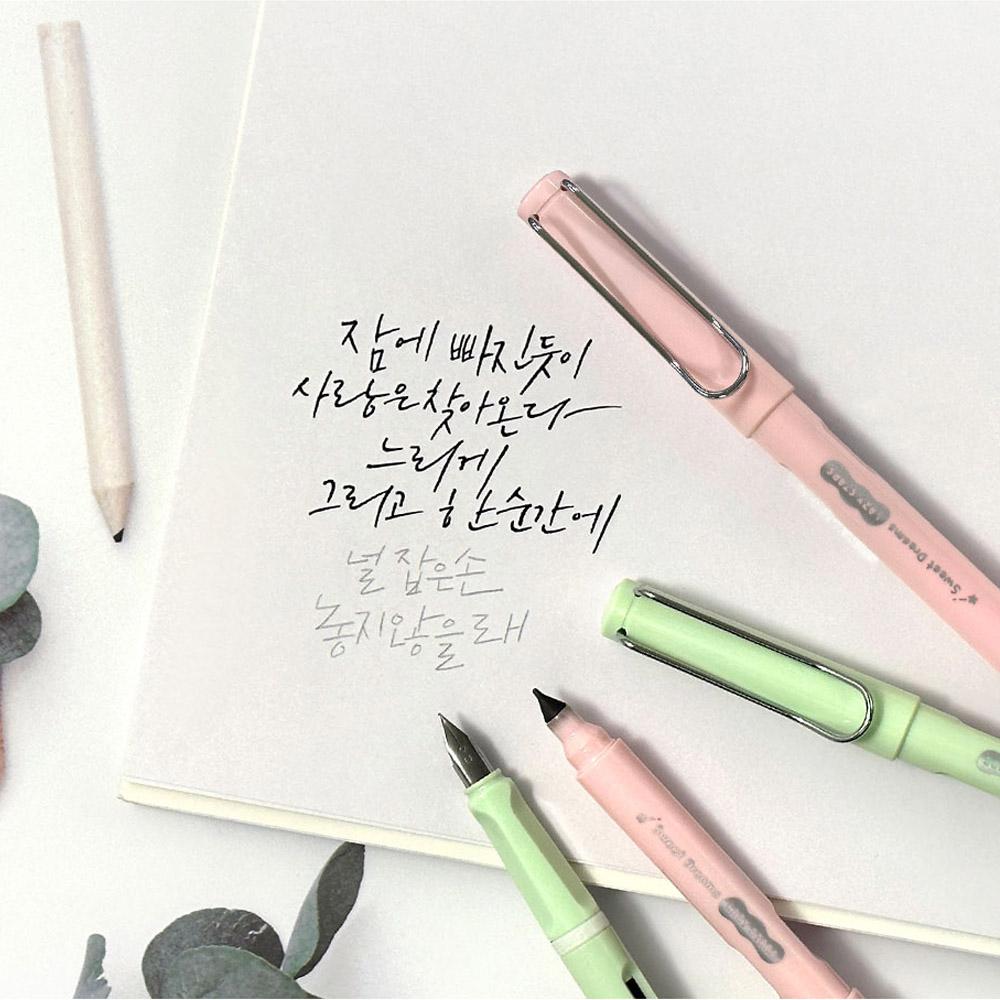 잠에 빠진듯이
사랑은 찾아온다
느리게
그리고 한순간에
널 잡은손
놓지않을래
LAZY STARS
Sweet Dreams
Sweet Dreams